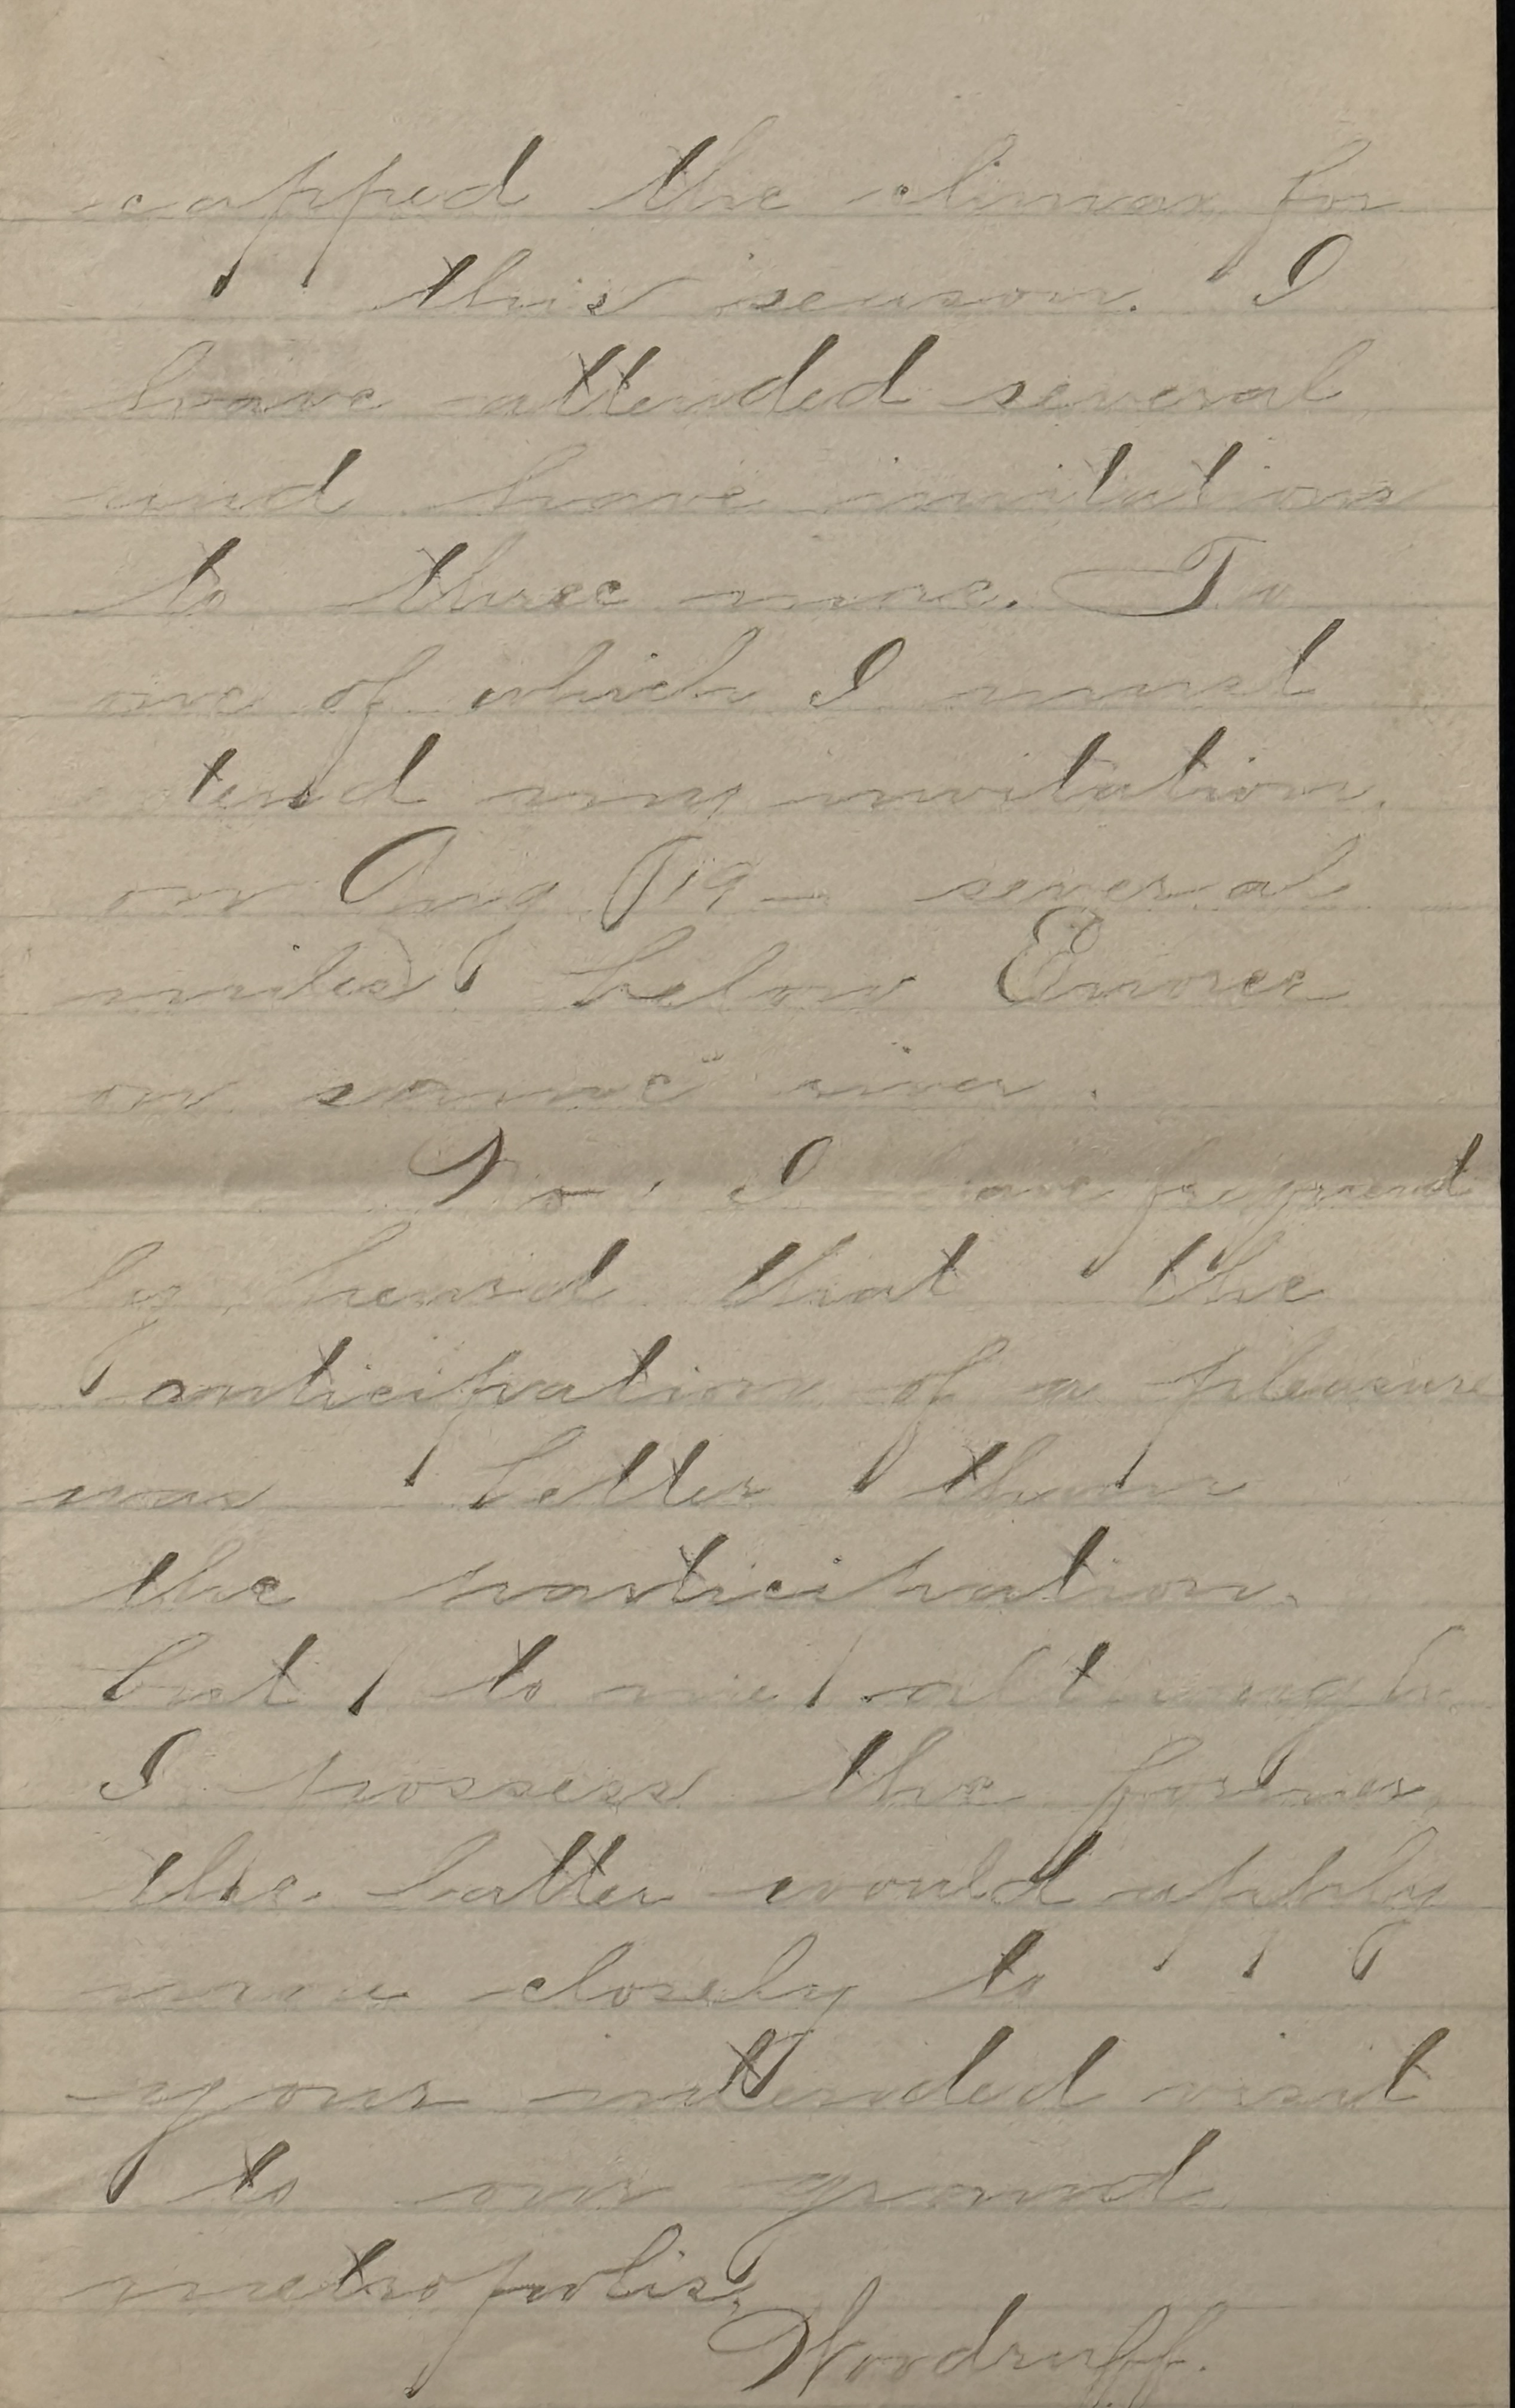 capped the climax for
this season. I
have attended several
and have invitations
to three more. To
one of which I must
tend my invitation,
on Aug 19 — several
miles below Enoree
on same river.
No, I have frequent
ly heard that the
anticipation of a pleasure
was better than
the participation,
but, to me, although
I possess the former,
the latter would apply
more closely to
your intended visit
to our grand
metropolis,
Woodruff.